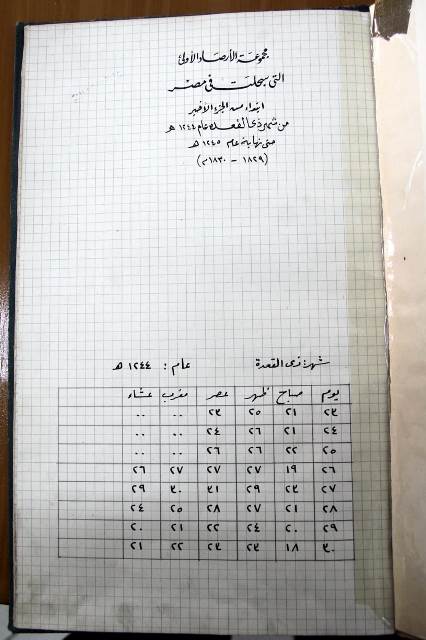 مجموعة الأرصاد الأولى
التى سجلت فى مصر
ابتداء من الجزء الأخير
من شهر ذى القعدة عام ١٢٤٤ هـ
حتى نهاية عام ١٢٤٥ هـ
(١٨٢٩ - ١٨٣٠ م)
شهر: ذى القعدة عام: ١٢٤٤ هـ
يوم صباح ظهر عصر مغرب عشاء
٢٣ ٢١ ٢٥ ٢٣ .. ..
٢٤ ٢١ ٢٦ ٢٤ .. ..
٢٥ ٢٢ ٢٦ ٢٦ .. ..
٢٦ ١٩ ٢٧ ٢٧ ٢٧ ٢٦
٢٧ ٢٣ ٢٩ ٣١ ٣٠ ٢٩
٢٨ ٢١ ٢٧ ٢٨ ٢٥ ٢٤
٢٩ ٢٠ ٢٤ ٢٢ ٢١ ٢٠
٣٠ ١٨ ٢٣ ٢٣ ٢٢ ٢١